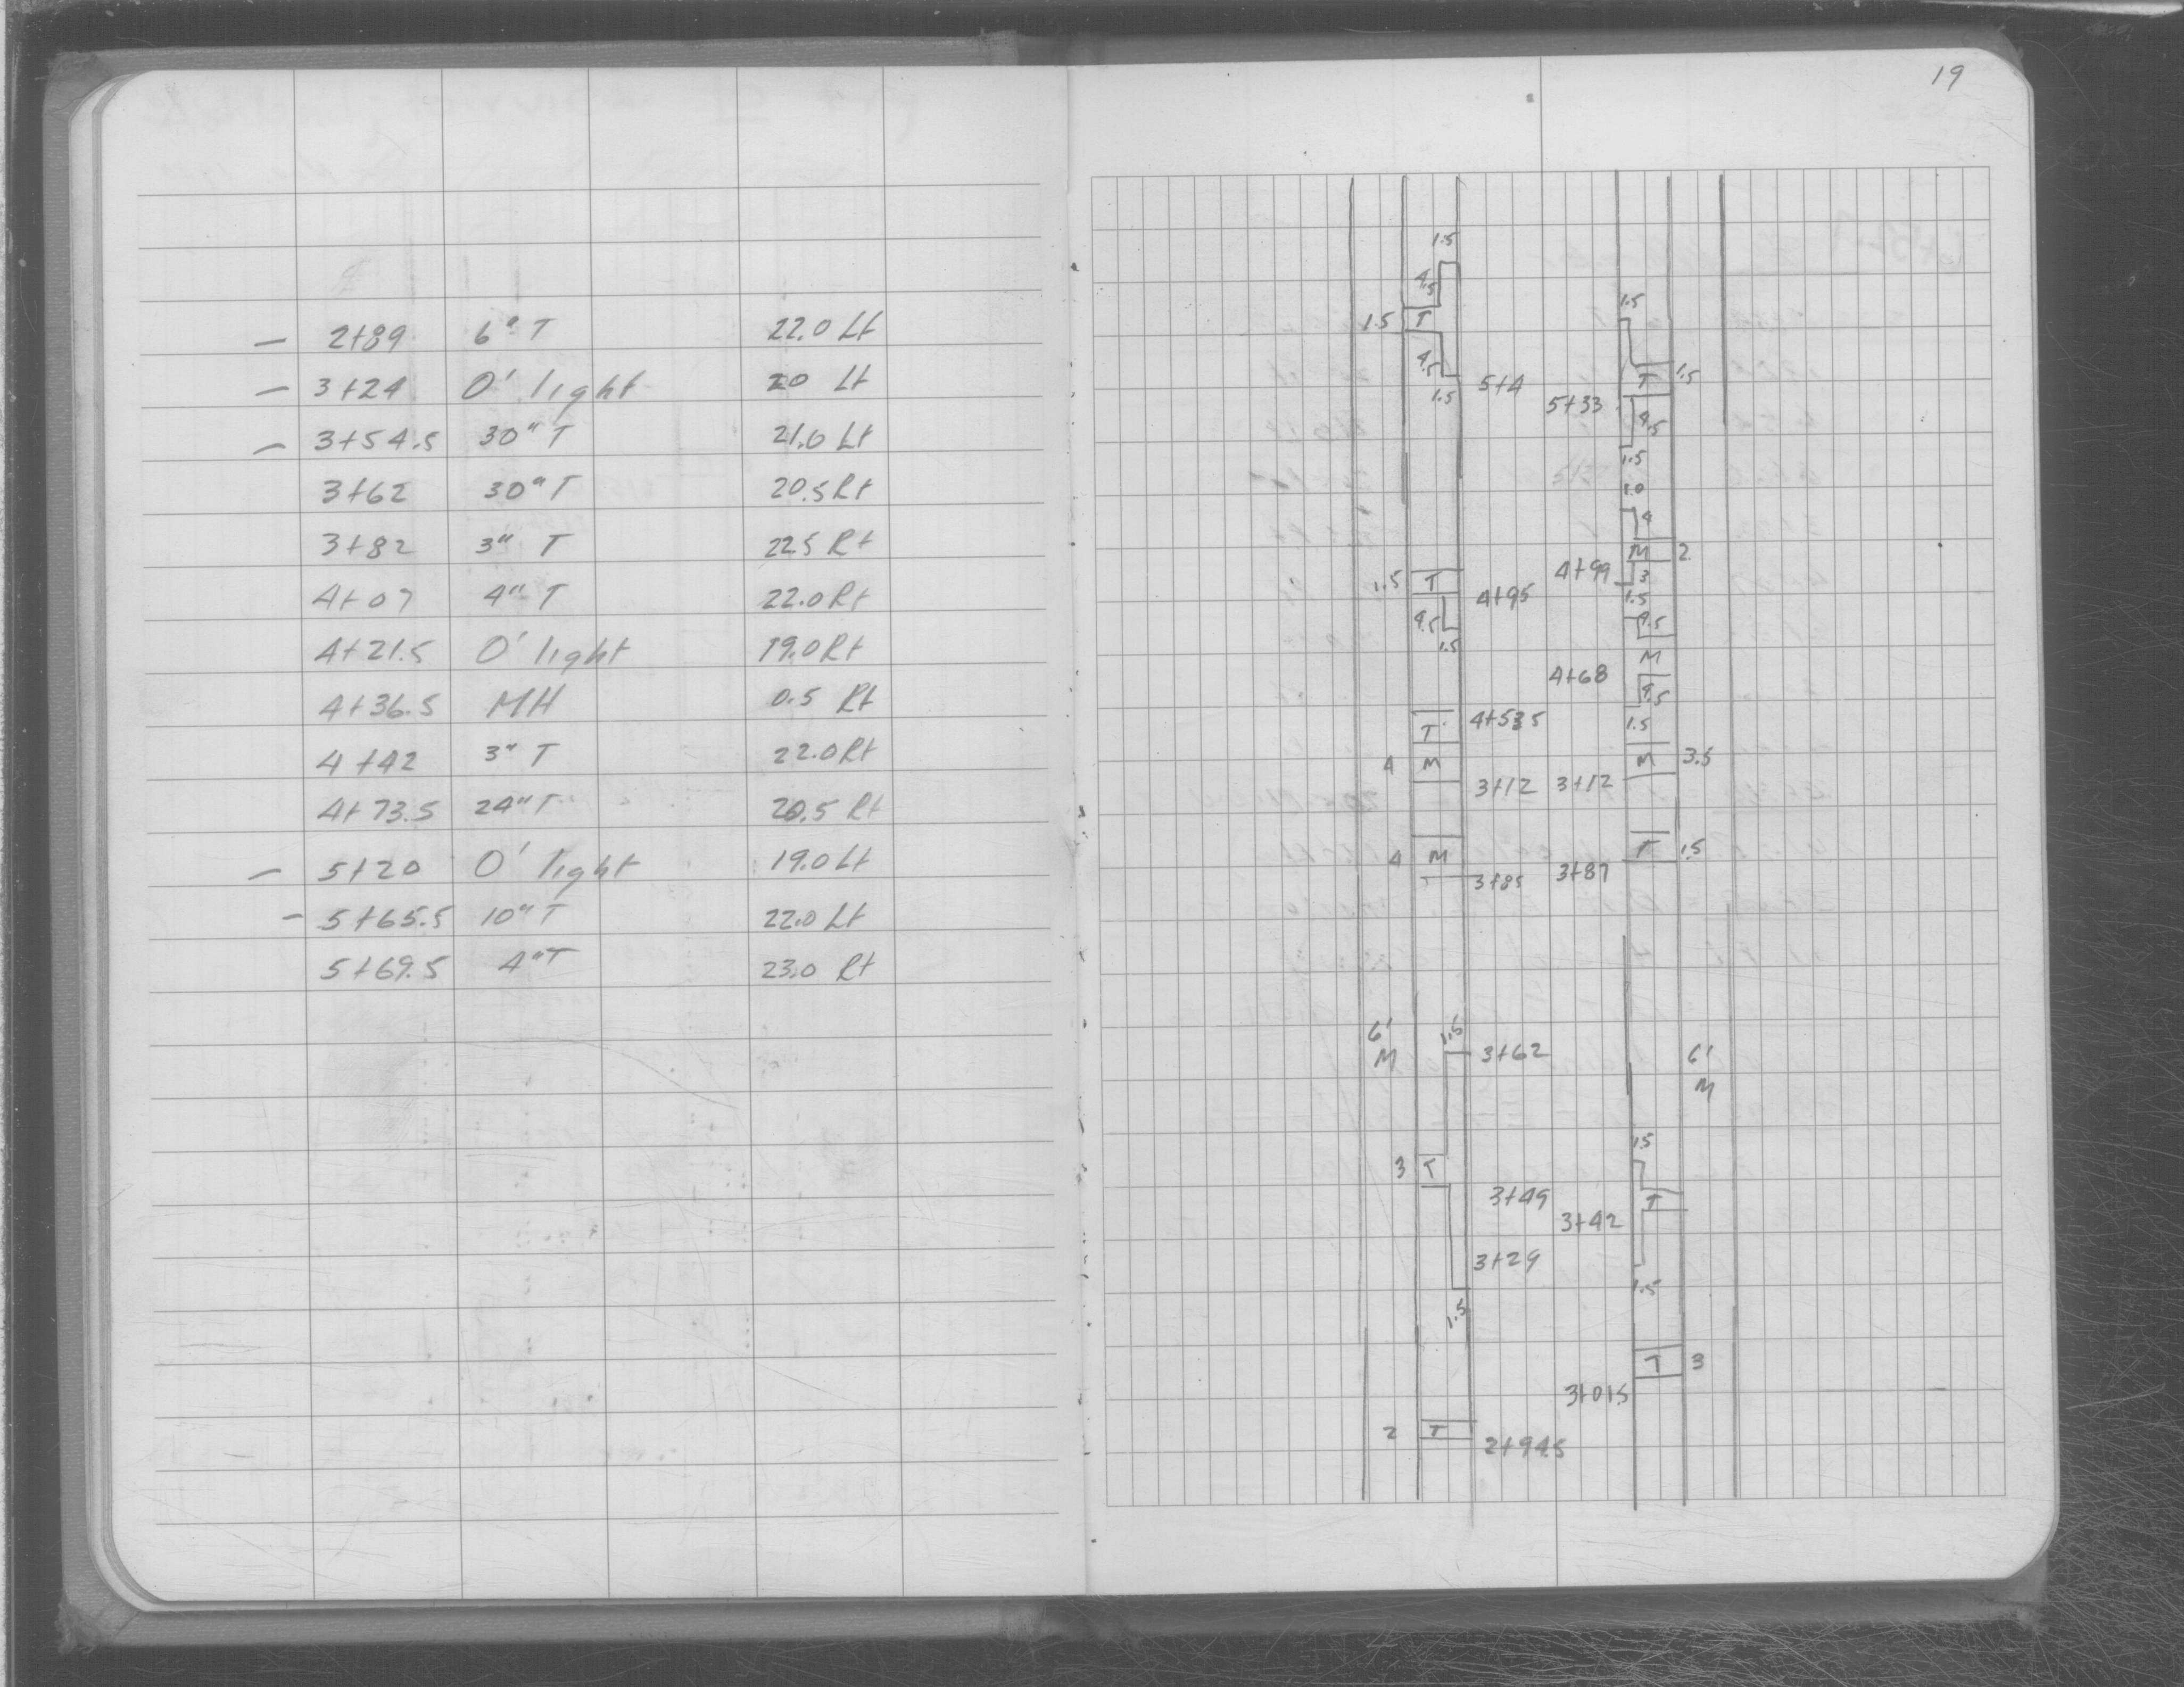 19
— 2+89 6" T 22.0 Lt
— 3+24 O' light 20 Lt
— 3+54.5 30" T 21.0 Lt
3+62 30" T 20.5 Rt
3+82 3" T 22.5 Rt
4+07 4" T 22.0 Rt
4+21.5 O' light 19.0 Rt
4+36.5 MH 0.5 Rt
4+42 3" T 22.0 Rt
4+73.5 24" T 20.5 Rt
— 5+20 O' light 19.0 Lt
— 5+65.5 10" T 22.0 Lt
5+69.5 4" T 23.0 Rt
1.5
4.5
1.5
1.5 T
T 1.5
4.5
1.5 5+4
5+33
4.5
1.5
1.0
4
M 2
4+99
1.5 T
3
4+95
1.5
4.5
4.5
1.5
M
4+68
4.5
4+535
1.5
T
4 M
M 3.5
3+12 3+12
T 1.5
4 M
3+85 3+87
6' 1.5
M 3+62
6'
M
1.5
3 T
3+49
T
3+42
3+29
1.5
1.5
T 3
3+01.5
2 T
2+94.5